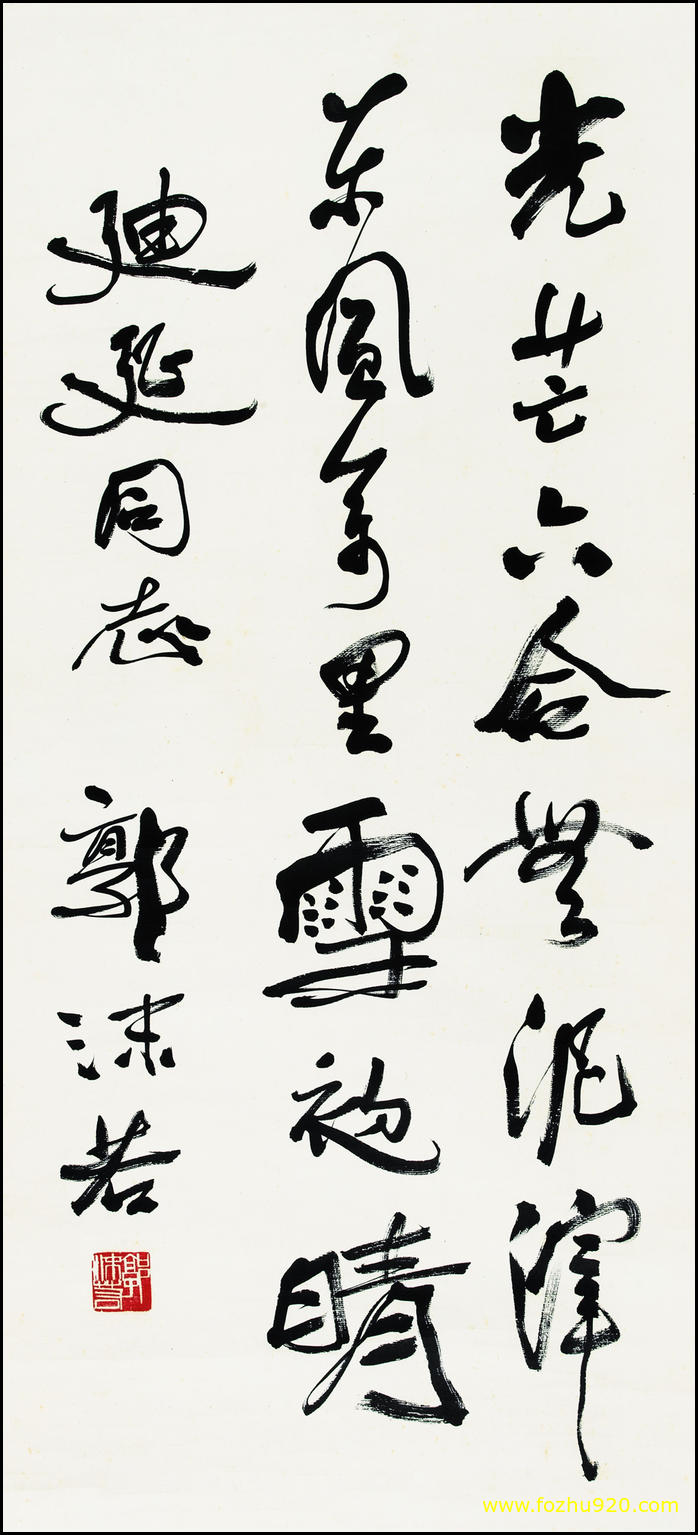 光芒六合無泥滓
東風萬里雪初晴
廸延同志 郭沫若
郭沫若
www.fozhu920.com